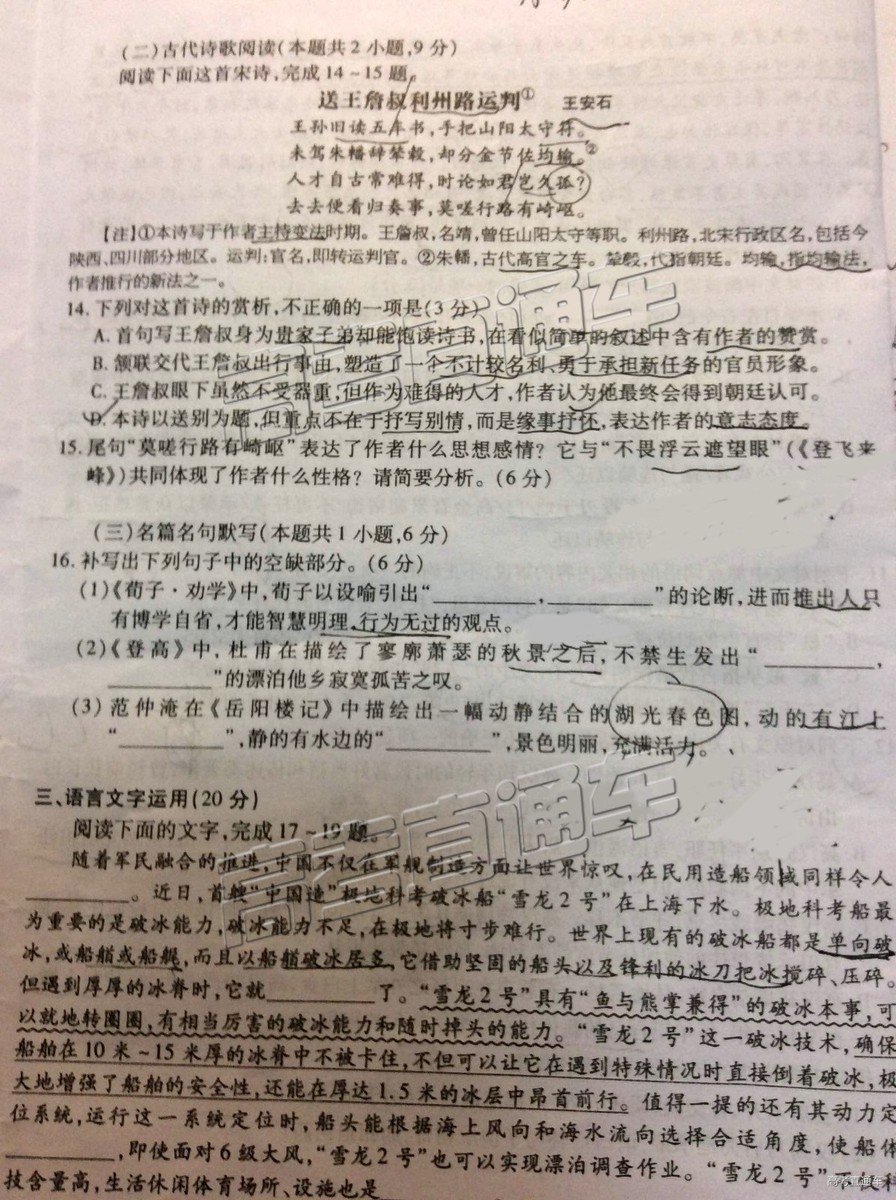 (二)古代诗歌阅读(本题共2小题,9分)
阅读下面这首宋诗,完成14~15题。
送王詹叔利州路运判① 王安石
王孙旧读五车书,手把山阳太守符。
未驾朱轓辞辇毂,却分金节佐均输。②
人才自古常难得,时论如君岂久孤?
去去便看归奏事,莫嗟行路有崎岖。
【注】①本诗写于作者主持变法时期。王詹叔,名靖,曾任山阳太守等职。利州路,北宋行政区名,包括今
陕西、四川部分地区。运判:官名,即转运判官。②朱轓,古代高官之车。辇毂,代指朝廷。均输,指均输法,
作者推行的新法之一。
14.下列对这首诗的赏析,不正确的一项是(3分)
A.首句写王詹叔身为贵家子弟却能饱读诗书,在看似简单的叙述中含有作者的赞赏。
B.颔联交代王詹叔出行事由,塑造了一个不计较名利、勇于承担新任务的官员形象。
C.王詹叔眼下虽然不受器重,但作为难得的人才,作者认为他最终会得到朝廷认可。
D.本诗以送别为题,但重点不在于抒写别情,而是缘事抒怀,表达作者的意志态度。
15.尾句“莫嗟行路有崎岖”表达了作者什么思想感情?它与“不畏浮云遮望眼”(《登飞来
峰》)共同体现了作者什么性格?请简要分析。(6分)
(三)名篇名句默写(本题共1小题,6分)
16.补写出下列句子中的空缺部分。(6分)
(1)《荀子·劝学》中,荀子以设喻引出“________,________”的论断,进而推出人只
有博学自省,才能智慧明理,行为无过的观点。
(2)《登高》中,杜甫在描绘了寥廓萧瑟的秋景之后,不禁生发出“________,
________”的漂泊他乡寂寞孤苦之叹。
(3)范仲淹在《岳阳楼记》中描绘出一幅动静结合的湖光春色图,动的有江上
“________”,静的有水边的“________”,景色明丽,充满活力。
三、语言文字运用(20分)
阅读下面的文字,完成17~19题。
随着军民融合的推进,中国不仅在军舰制造方面让世界惊叹,在民用造船领域同样令人
________。近日,首艘“中国造”极地科考破冰船“雪龙2号”在上海下水。极地科考船最
为重要的是破冰能力,破冰能力不足,在极地将寸步难行。世界上现有的破冰船都是单向破
冰,或船艏或船艉,而且以船艏破冰居多,它借助坚固的船头以及锋利的冰刀把冰搅碎、压碎。
但遇到厚厚的冰脊时,它就________了。“雪龙2号”具有“鱼与熊掌兼得”的破冰本事,可
以就地转圈圈,有相当厉害的破冰能力和随时掉头的能力。“雪龙2号”这一破冰技术,确保
船舶在10米~15米厚的冰脊中不被卡住,不但可以让它在遇到特殊情况时直接倒着破冰,极
大地增强了船舶的安全性,还能在厚达1.5米的冰层中昂首前行。值得一提的还有其动力定
位系统,运行这一系统定位时,船头能根据海上风向和海水流向选择合适角度,使船体
________,即使面对6级大风,“雪龙2号”也可以实现漂泊调查作业。“雪龙2号”不仅科
技含量高,生活休闲体育场所、设施也是________
高考直通车
高考直通车
高考直通车